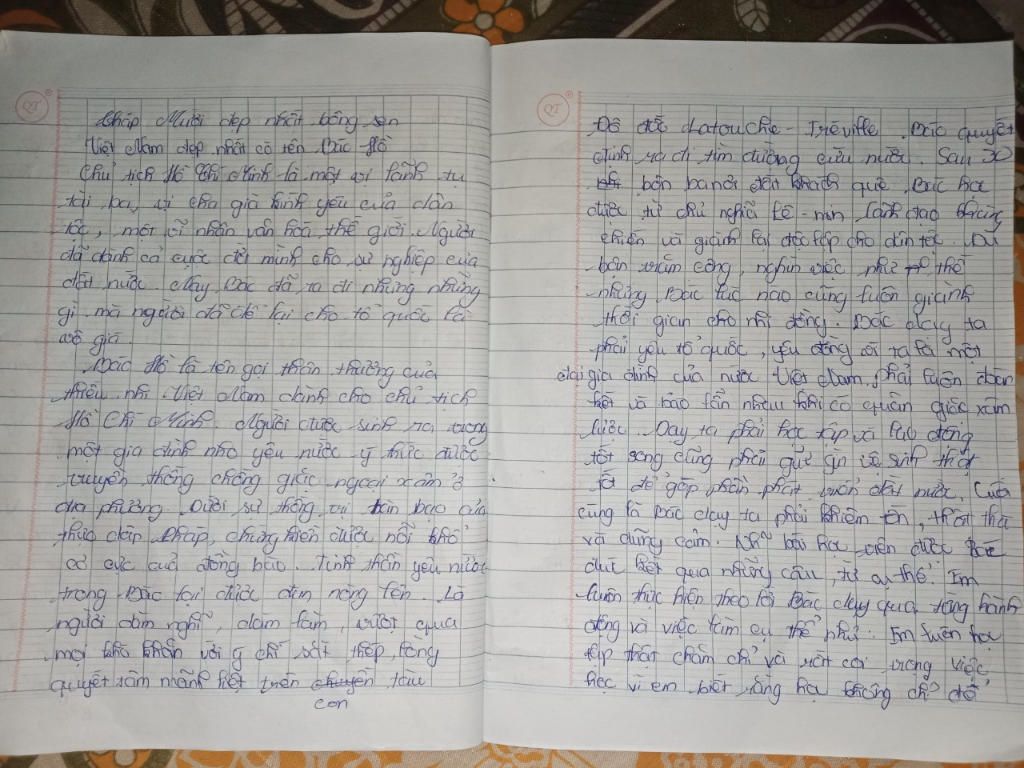 QT
Tháp Mười đẹp nhất bông sen
Việt Nam đẹp nhất có tên Bác Hồ
Chủ tịch Hồ Chí Minh là một vị lãnh tụ
tài ba, vị cha già kính yêu của dân
tộc, một vĩ nhân văn hóa thế giới. Người
đã dành cả cuộc đời mình cho sự nghiệp của
đất nước. Nay, Bác đã ra đi nhưng những
gì mà người đã để lại cho tổ quốc là
vô giá.
Bác Hồ là tên gọi thân thương của
thiếu nhi Việt Nam dành cho chủ tịch
Hồ Chí Minh. Người được sinh ra trong
một gia đình nho yêu nước ý thức được
truyền thống chống giặc ngoại xâm ở
địa phương. Dưới sự thống trị tàn bạo của
thực dân Pháp, chứng kiến được nỗi khổ
cơ cực của đồng bào. Tinh thần yêu nước
trong Bác lại được dân nâng lên. Là
người dám nghĩ, dám làm, vượt qua
mọi khó khăn với ý chí sắt thép, lòng
quyết tâm mãnh liệt trên chuyến tàu
con
QT
Đô đốc Latouche - Tréville. Bác quyết
định ra đi tìm đường cứu nước. Sau 30
bôn ba nơi đất khách quê, Bác học
được từ chủ nghĩa Lê-nin, lãnh đạo kháng
chiến và giành lại độc lập cho dân tộc. Dù
bận trăm công, nghìn việc như thế
nhưng Bác lúc nào cũng luôn giành
thời gian cho nhi đồng. Bác dạy ta
phải yêu tổ quốc, yêu đồng vì ta là một
đại gia đình của nước Việt Nam, phải luôn đoàn
kết và bảo lẫn nhau khi có quân giặc xâm
lược. Dạy ta phải học tập và lao động
tốt song cũng phải giữ gìn vệ sinh thật
tốt để góp phần phát triển đất nước. Cuối
cùng là Bác dạy ta phải khiêm tốn, thật thà
và dũng cảm. Những bài học trên được Bác
đúc kết qua những câu, từ cụ thể. Em
luôn thực hiện theo lời Bác dạy qua từng hành
động và việc làm cụ thể như: Em luôn học
tập thật chăm chỉ và rất coi trọng việc
học vì em biết rằng học không chỉ để